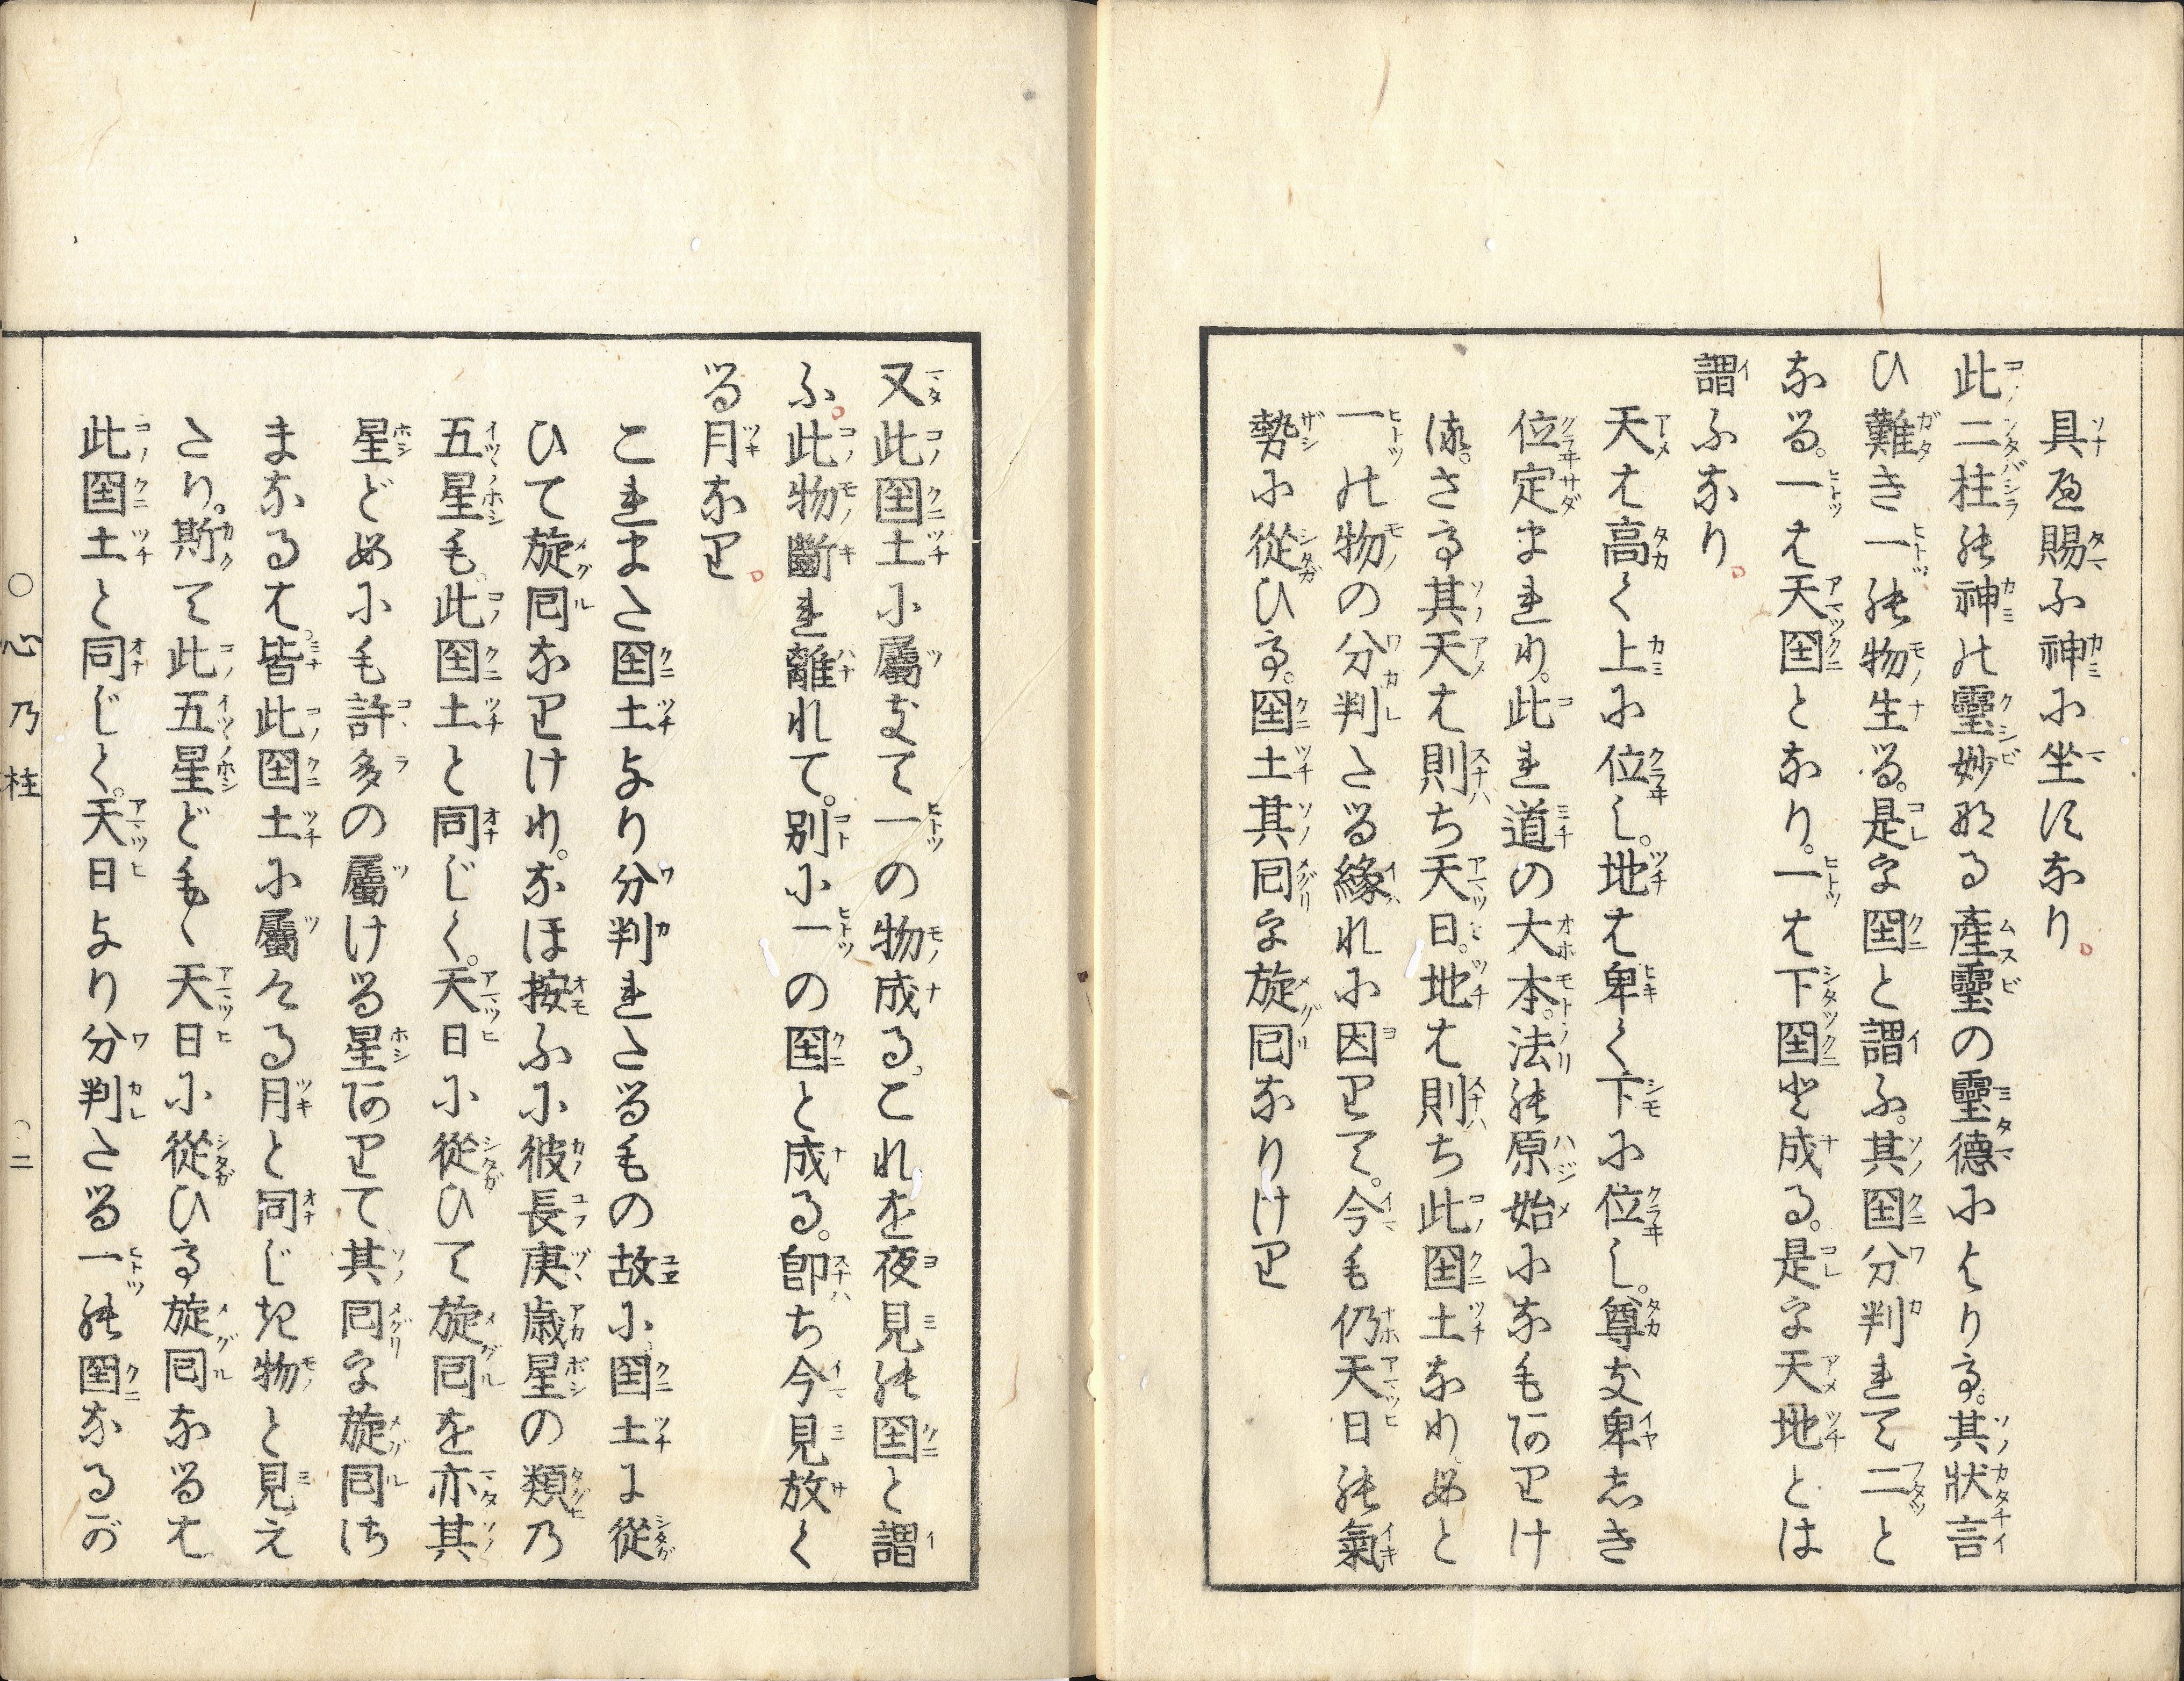 具へ賜ふ神に坐すなり。
此二柱の神の靈妙なる產靈の靈德によりて。其狀言
ひ難き一の物生る。是を国と謂ふ。其国分判れて二と
なる。一は天国となり。一は下国と成る。是を天地とは
謂ふなり。
天は高く上に位し。地は卑く下に位し。尊支卑しき
位定まれり。此れ道の大本。法の原始になもありけ
る。さて其天は則ち天日。地は則ち此国土なり。もと
一の物の分判たる緣れに因りて。今も仍天日の氣
勢に從ひて。国土其囘を旋囘なりけり
又此国土に屬きて一の物成る。これを夜見の国と謂
ふ。此物斷れ離れて。別に一の国と成る。卽ち今見放く
る月なり。
これまた国土より分判れたるもの故に。国土に從
ひて旋囘なりけり。なほ按ふに彼長庚歲星の類乃
五星も。此国土と同じく。天日に從ひて旋囘を亦其
星どもにも許多の屬ける星ありて。其囘を旋囘は
まなるは。皆此国土に屬たる月と同じき物と見え
たり。斯て此五星どもゝ天日に從ひて旋囘なるは
此国土と同じく。天日より分判たる一の国なるが
〇心乃柱 〇二